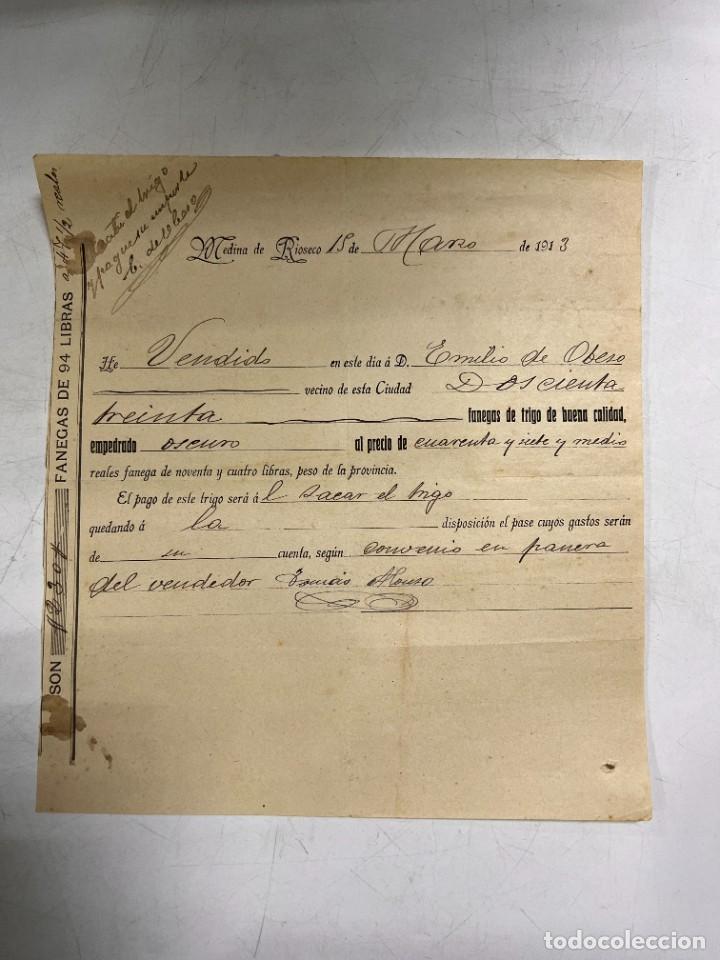 el trigo
y páguese su importe
E. de Obeso
Medina de Rioseco 15 de Marzo de 1913
He Vendido en este dia á D. Emilio de Obeso
vecino de esta Ciudad Doscienta
treinta fanegas de trigo de buena calidad,
empedrado oscuro al precio de cuarenta y siete y medio
reales fanega de noventa y cuatro libras, peso de la provincia.
El pago de este trigo será á l sacar el trigo
quedando á la disposición el pase cuyos gastos serán
de su cuenta, según convenio en panera
del vendedor Tomás Alonso
SON # 230 # FANEGAS DE 94 LIBRAS a 47 1/2 reales
todocoleccion.net